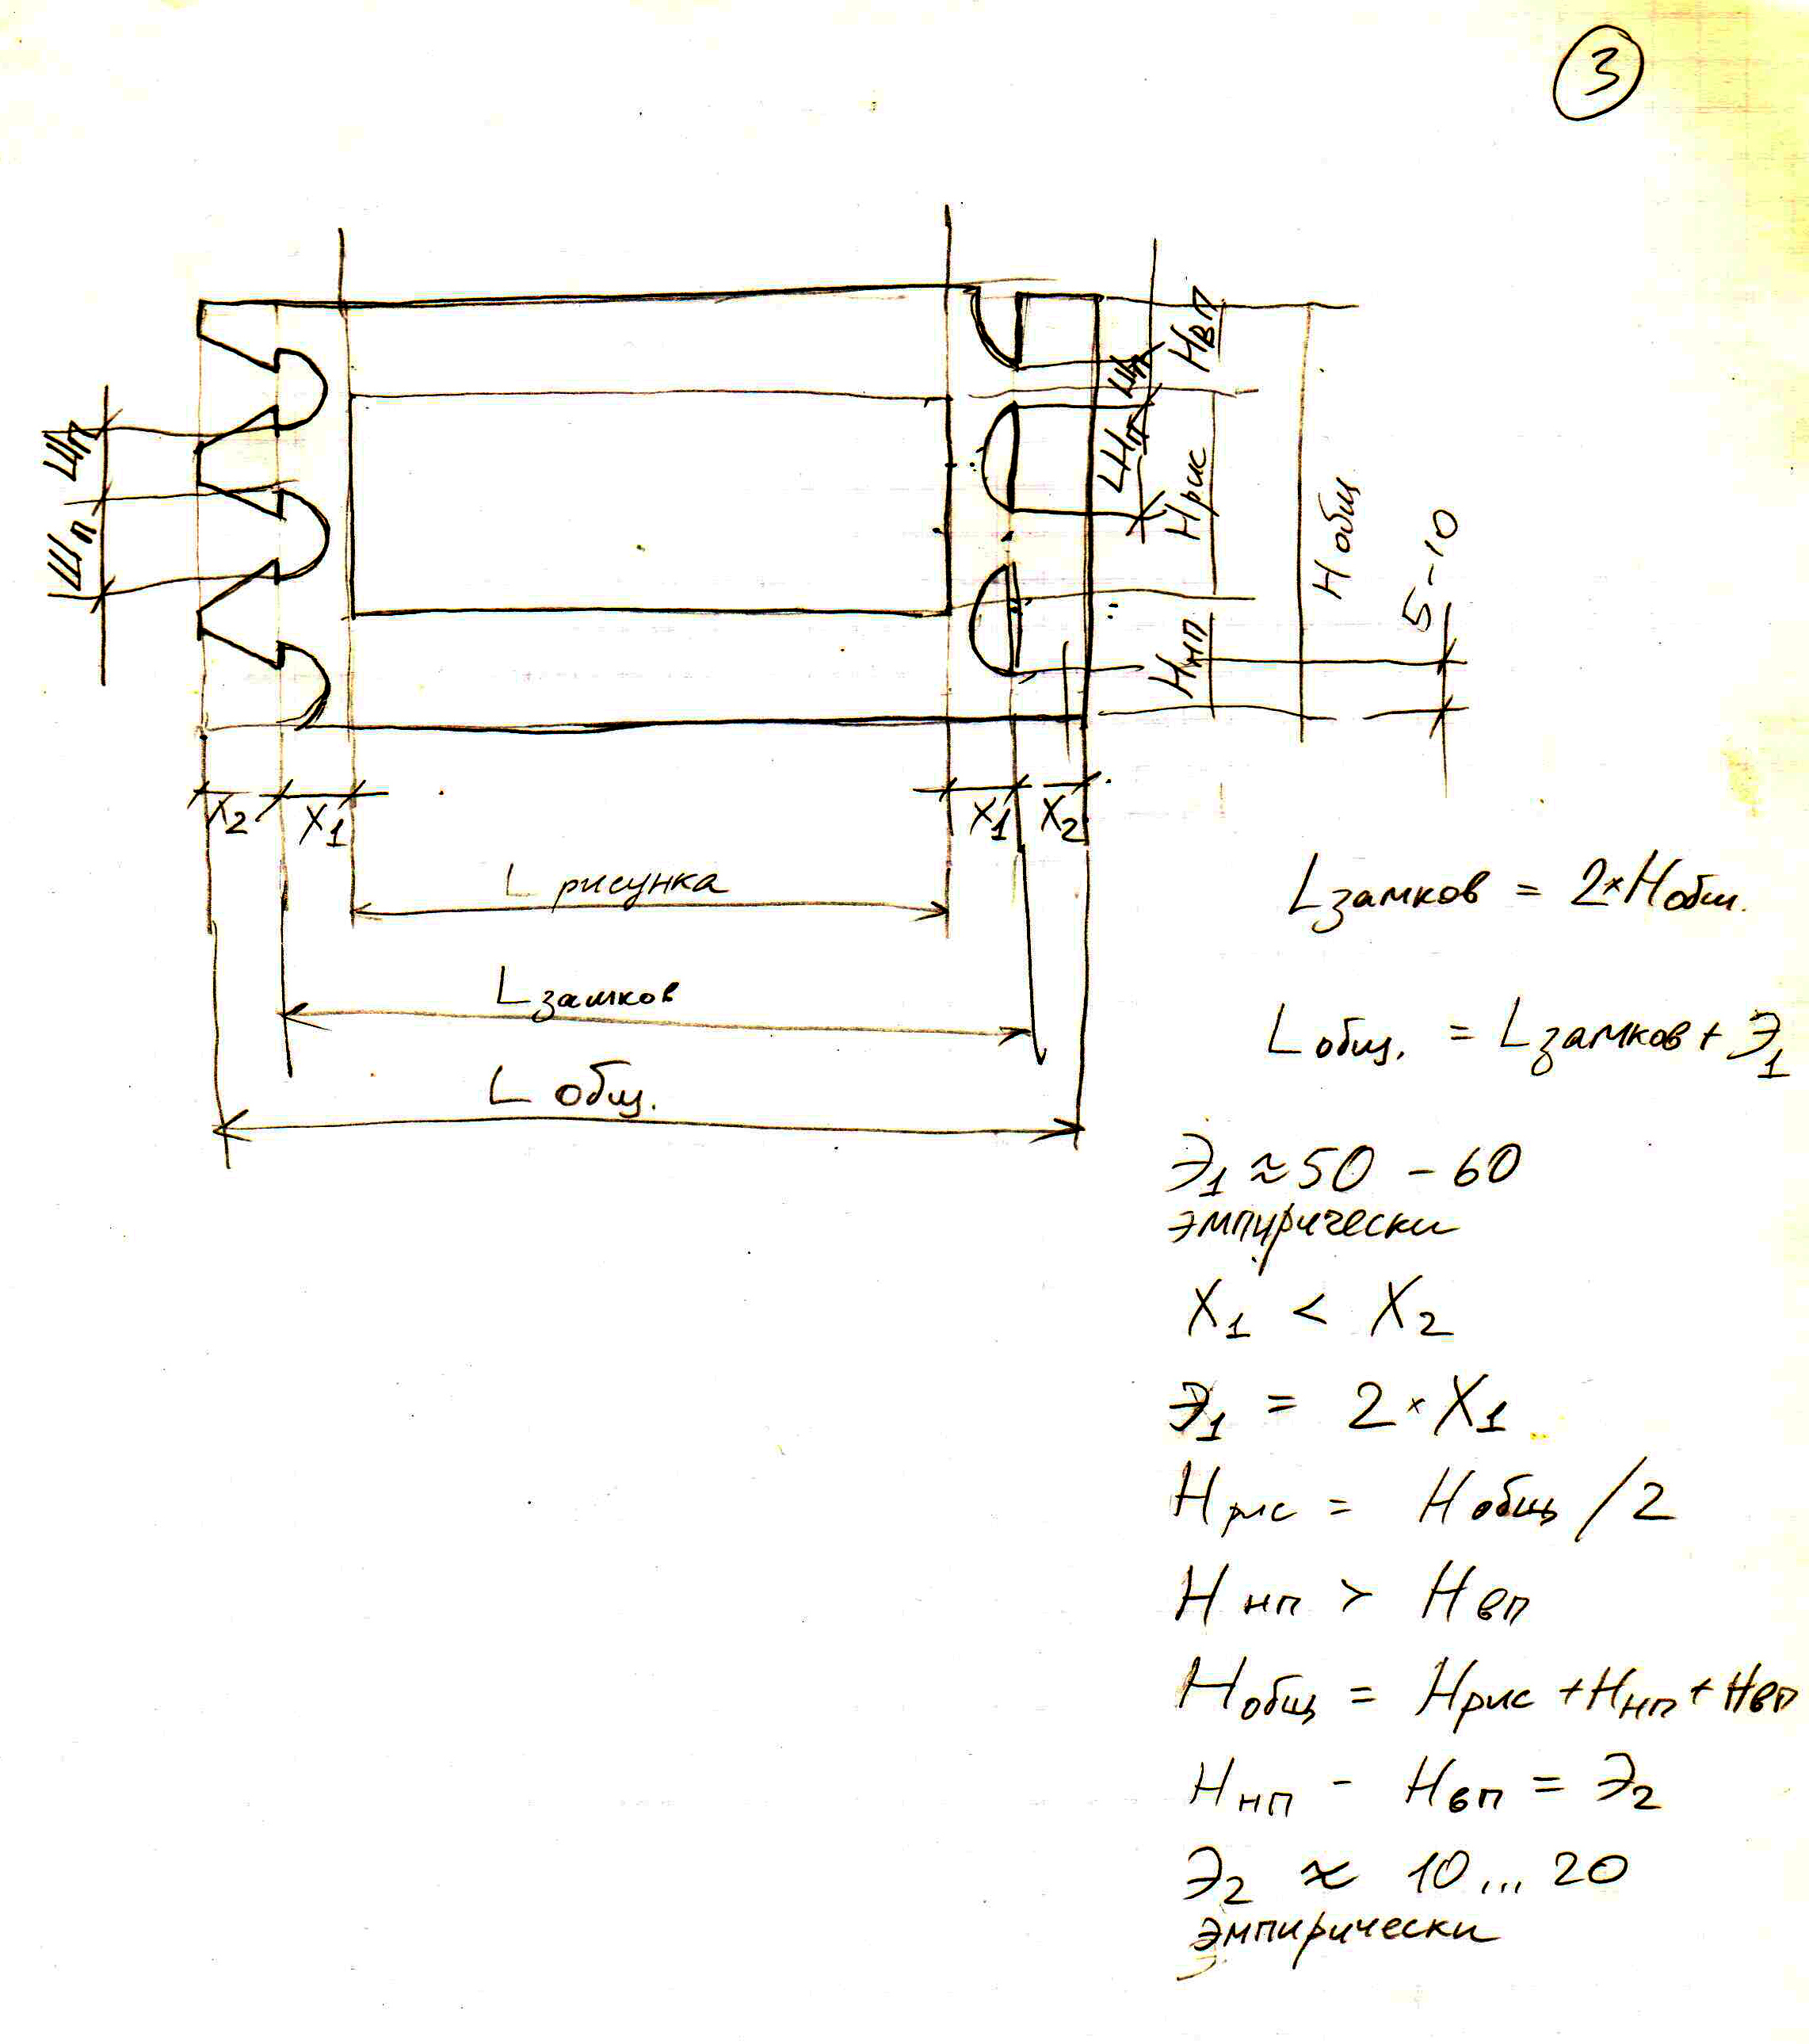 3
Hвп
Шп
Шп
Шп
Шп
Hрис
Hобщ
5-10
Hнп
X2
X1
X1
X2
L рисунка
Lзамков
L общ.
Lзамков = 2×Hобщ.
Lобщ. = Lзамков + Э1
Э1 ≈ 50 - 60
эмпирически
X1 < X2
Э1 = 2×X1
Hрис = Hобщ /2
Hнп > Hвп
Hобщ = Hрис + Hнп + Hвп
Hнп - Hвп = Э2
Э2 ≈ 10...20
эмпирически